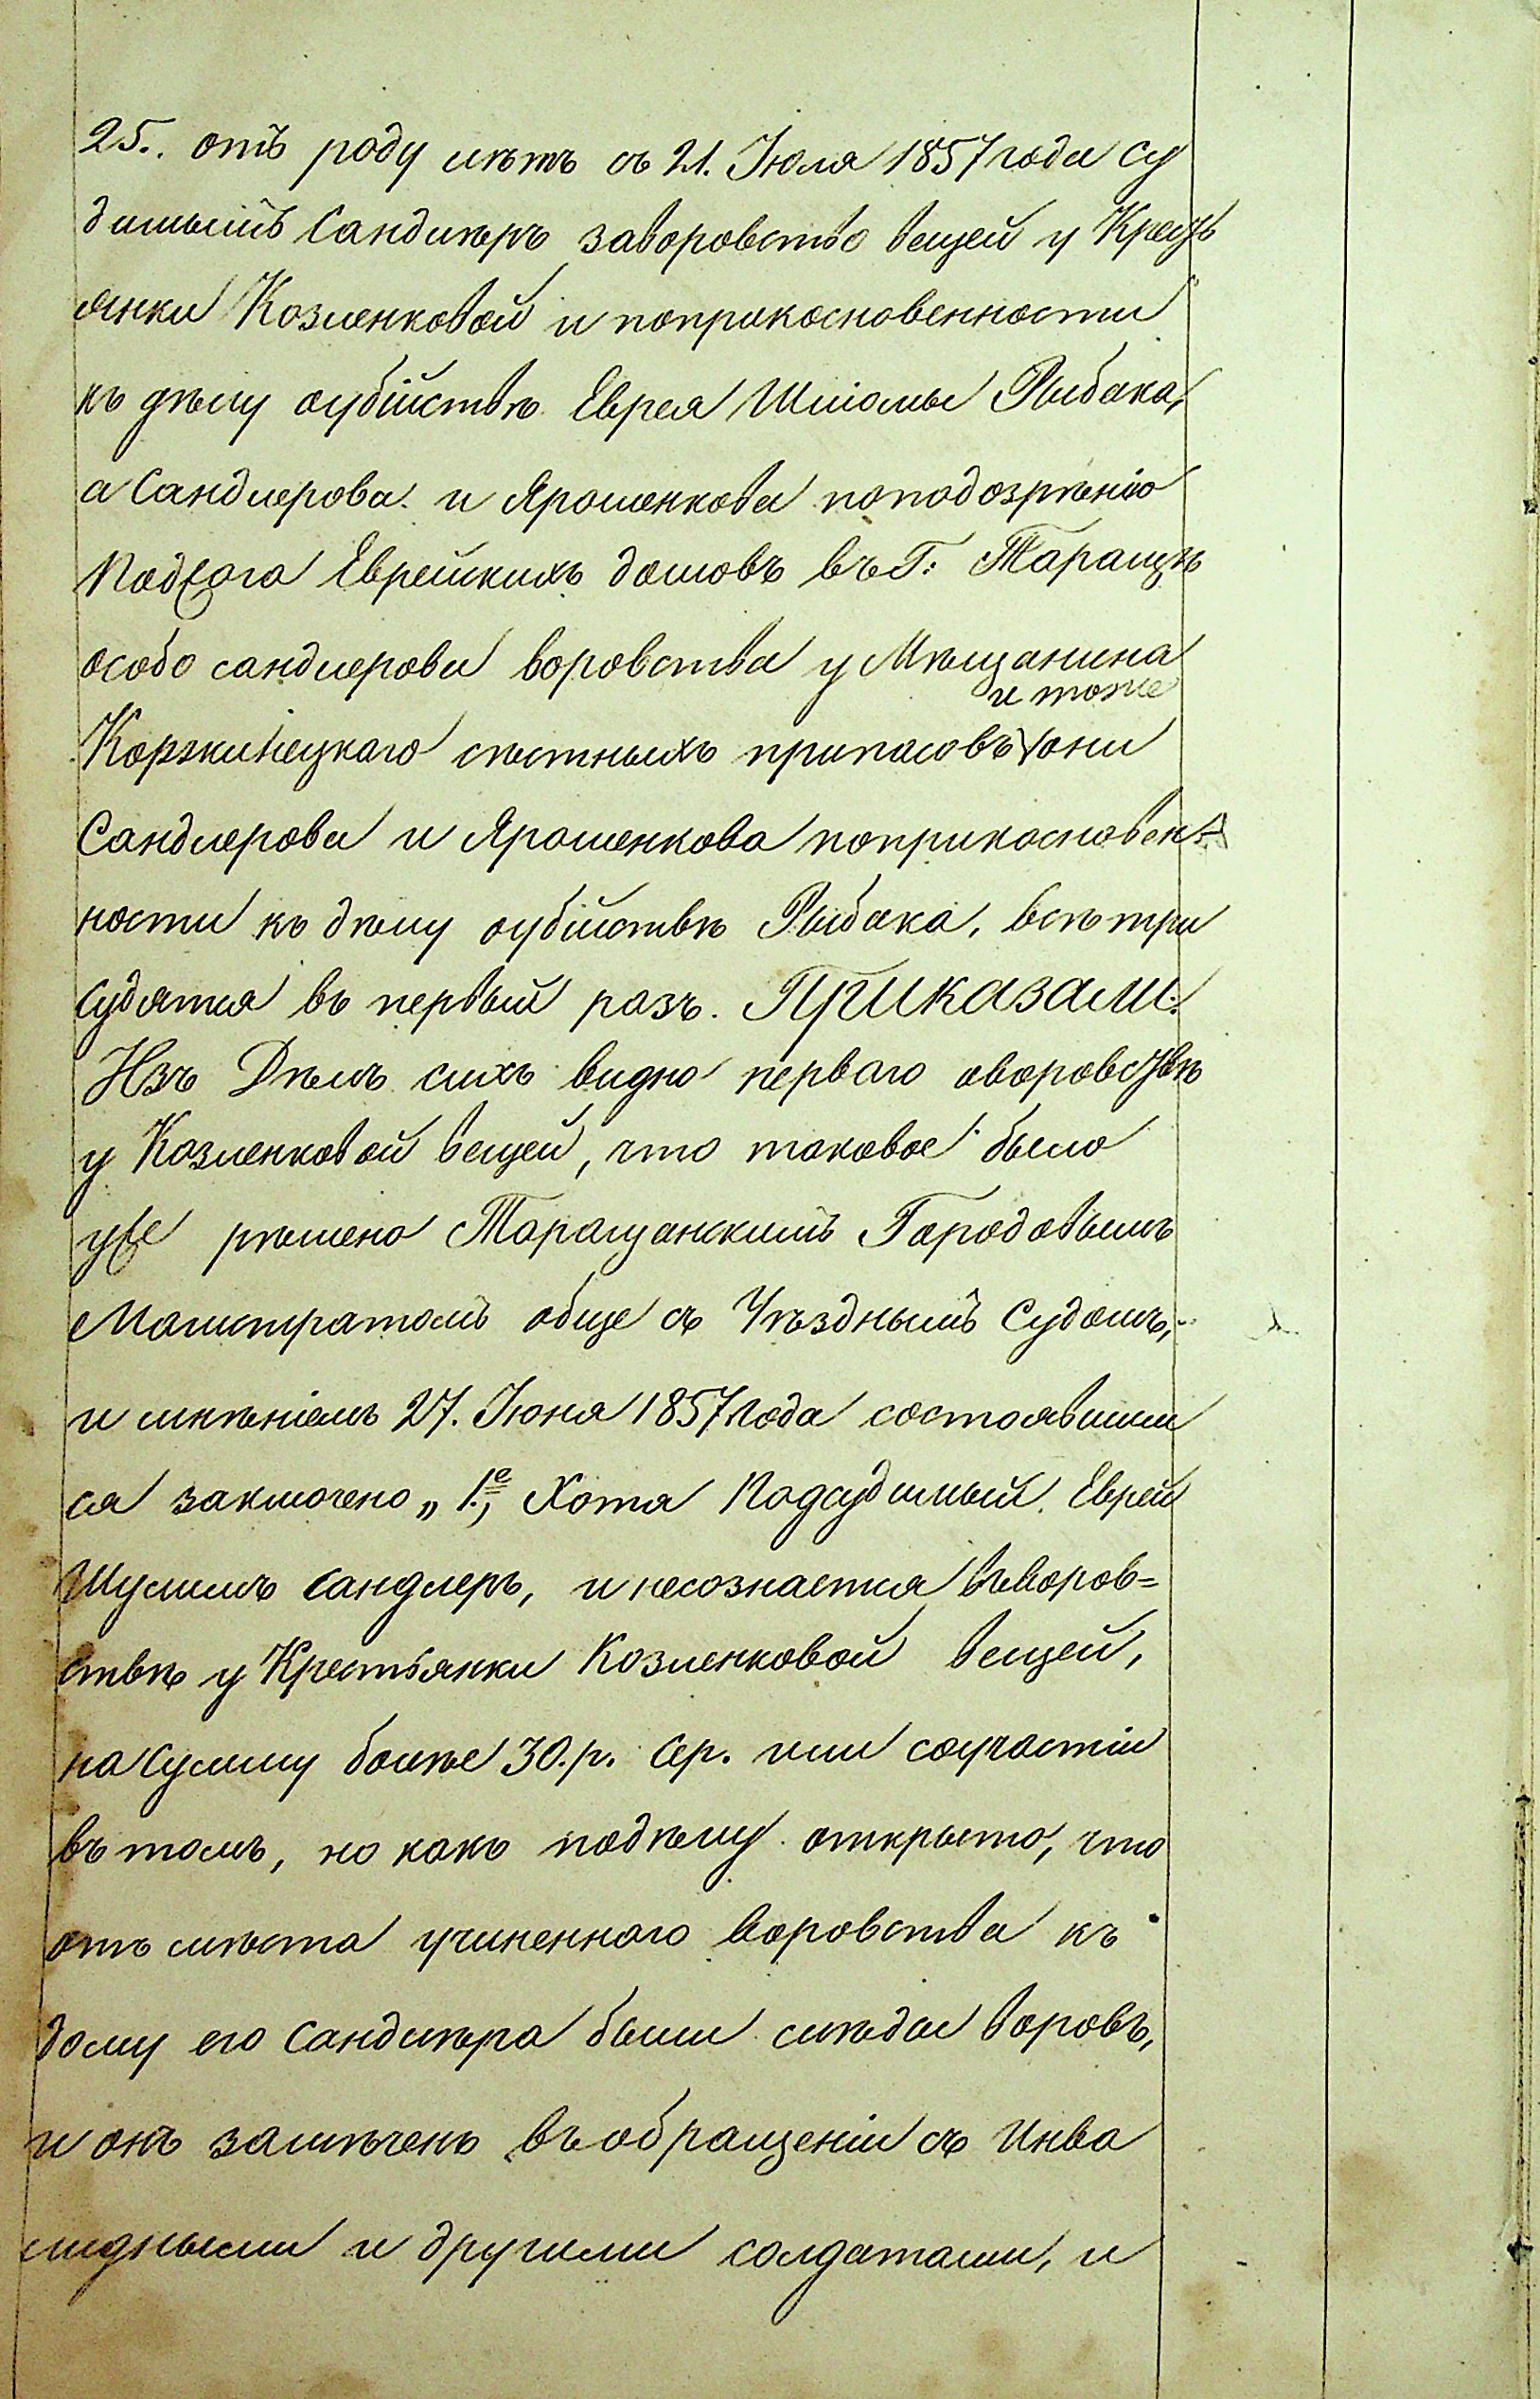 25. отъ роду лѣтъ съ 21. Іюля 1857 года су
димымъ Сандлѣръ заворовство вещей у Крест
янки Козленковой и поприкосновенности
къ дѣлу оубійствѣ Еврея Шліомы Рыбака,
а Сандлерова и Ярошенкова поподозрѣнію
Поджога Еврейкихъ домовъ въ Г: Таращѣ
особо сандлерова воровства у Мѣщанина
и тоже
Коржинецкаго съѣстныхъ припасовъ они
Сандлерова и Ярошенкова поприкосновен-
ности къ дѣлу оубійствѣ Рыбака, всѣ три
судятся въ первый разъ. Приказали:
Изъ Дѣлъ сихъ видно перваго оворовствѣ
у Козленковой вещей, что таковое было
уже рѣшено Таращанскимъ Городовымъ
Магистратомъ обще съ Уѣзднымъ Судомъ,
и мнѣніемъ 27. Іюня 1857 года состоявшим
ся заключено „1.е, Хотя Подсудимый Еврей
Шулимъ Сандлеръ, и несознается въворов=
ствѣ у Крестьянки Козленковой вещей,
на сумму болѣе 30. р. сер. или соучастіи
въ томъ, но какъ подѣлу открыто, что
отъ мѣста учиненнаго воровства къ
дому его Сандлѣра были слѣды воровъ,
и онъ замѣченъ въобращеніи съ Инва
лидными и другими солдатами, и